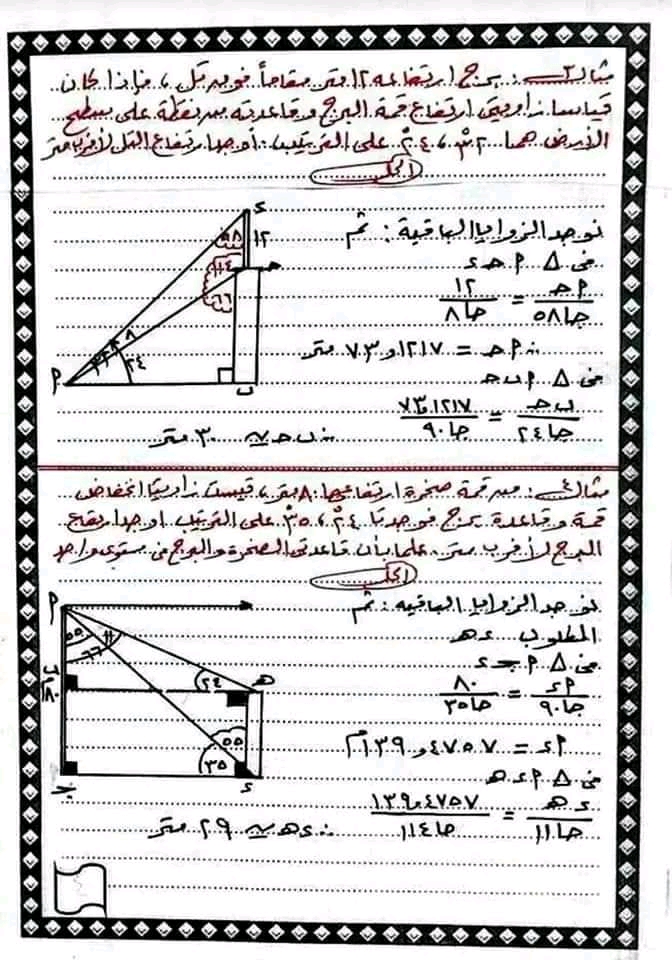 مثال ٣ : برج ارتفاعه ١٢ متر مقاماً فوق تل ، فإذا كان
قياسا زاويتى ارتفاع قمة البرج وقاعدته من نقطة على سطح
الأرض هما ٣٢° ، ٢٤° على الترتيب : أوجد ارتفاع التل لأقرب متر
الحل
نوجد الزوايا الباقية : ثم
فى Δ ٩ حـ ء
٩حـ / جا٥٨ = ١٢ / جا٨
∴ ٩حـ = ٧٣,١٢١٧ متر
فى Δ ٩ ب حـ
ب حـ / جا٢٤ = ٧٣,١٢١٧ / جا٩٠
∴ ب حـ ≃ ٣٠ متر
ء
٥٨
١٢
١١٤
حـ
٦٦
٨
٣٢
٢٤
٩
ب
مثال ٤ : من قمة صخرة ارتفاعها ٨٠ متر ، قيست زاويتا انخفاض
قمة وقاعدة برج فوجدتا ٢٤° ، ٣٥° على الترتيب أوجد ارتفاع
البرج لأقرب متر علماً بأن قاعدتى الصخرة والبرج فى مستوى واحد
الحل
نوجد الزوايا الباقيه : ثم
المطلوب ء هـ
فى Δ ٩ جـ ء
٩ء / جا٩٠ = ٨٠ / جا٣٥
٩ء = ١٣٩,٤٧٥٧ م
فى Δ ٩ ء هـ
ء هـ / جا١١ = ١٣٩,٤٧٥٧ / جا١١٤
∴ ء هـ ≃ ٢٩ متر
٩
٥٥
١١
٦٦
ب
٨٠م
٢٤
هـ
٥٥
٣٥
جـ
ء